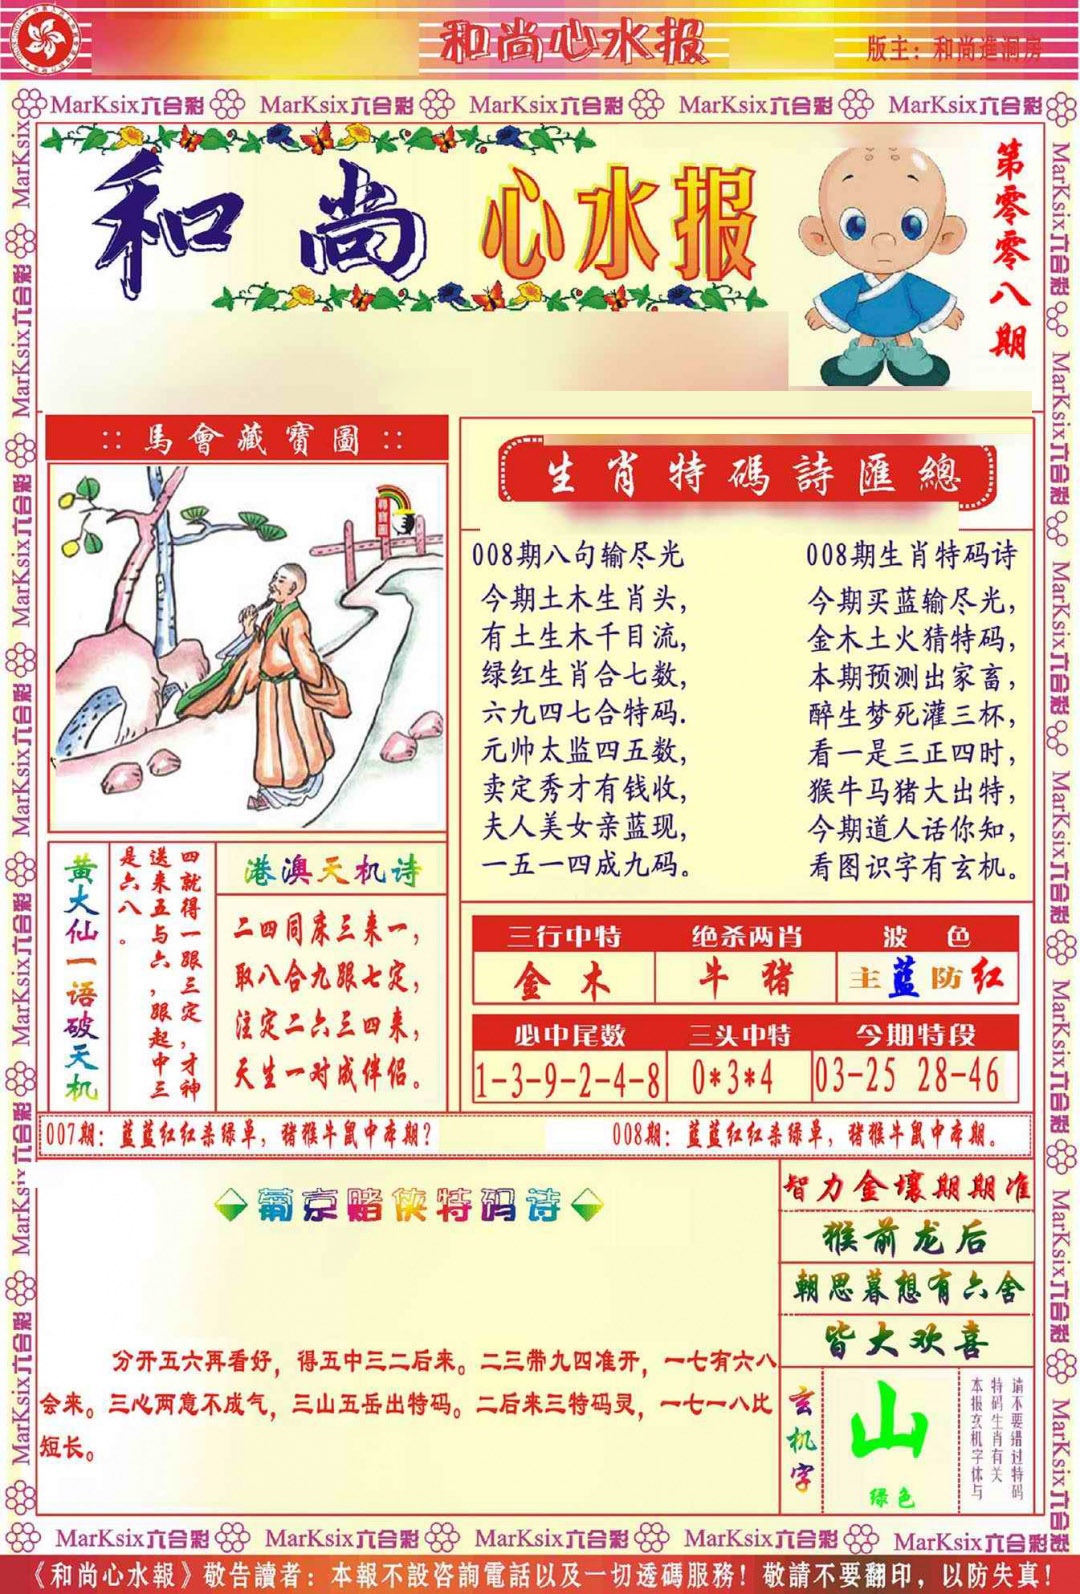 和尚心水报
版主：和尚進洞房
MarKsix六合彩 MarKsix六合彩 MarKsix六合彩 MarKsix六合彩 MarKsix六合彩
和尚心水报
第零零八期
:: 馬會藏寶圖 ::
生肖特碼詩匯總
008期八句输尽光
今期土木生肖头，
有土生木千目流，
绿红生肖合七数，
六九四七合特码.
元帅太监四五数，
卖定秀才有钱收，
夫人美女亲蓝现，
一五一四成九码。
008期生肖特码诗
今期买蓝输尽光，
金木土火猜特码，
本期预测出家畜，
醉生梦死灌三杯，
看一是三正四时，
猴牛马猪大出特，
今期道人话你知，
看图识字有玄机。
黄大仙一语破天机
四就得一跟三定，才神
送来五与六，跟起中三
是六八。
港澳天机诗
二四同床三来一，
取八合九跟七定，
注定二六三四来，
天生一对成伴侣。
三行中特 绝杀两肖 波色
金木 牛猪 主蓝防红
必中尾数 三头中特 今期特段
1-3-9-2-4-8 0*3*4 03-25 28-46
007期：蓝蓝红红杀绿单，猪猴牛鼠中本期？
008期：蓝蓝红红杀绿单，猪猴牛鼠中本期。
葡京赌侠特码诗
分开五六再看好，得五中三二后来。二三带九四准开，一七有六八
会来。三心两意不成气，三山五岳出特码。二后来三特码灵，一七一八比
短长。
智力金壤期期准
猴前龙后
朝思暮想有六舍
皆大欢喜
玄机字
山
绿色
请不要错过特码
特码生肖有关
本报玄机字体与
MarKsix六合彩 MarKsix六合彩 MarKsix六合彩 MarKsix六合彩 MarKsix六合彩
《和尚心水報》敬告讀者：本報不設咨詢電話以及一切透碼服務！敬請不要翻印，以防失真！